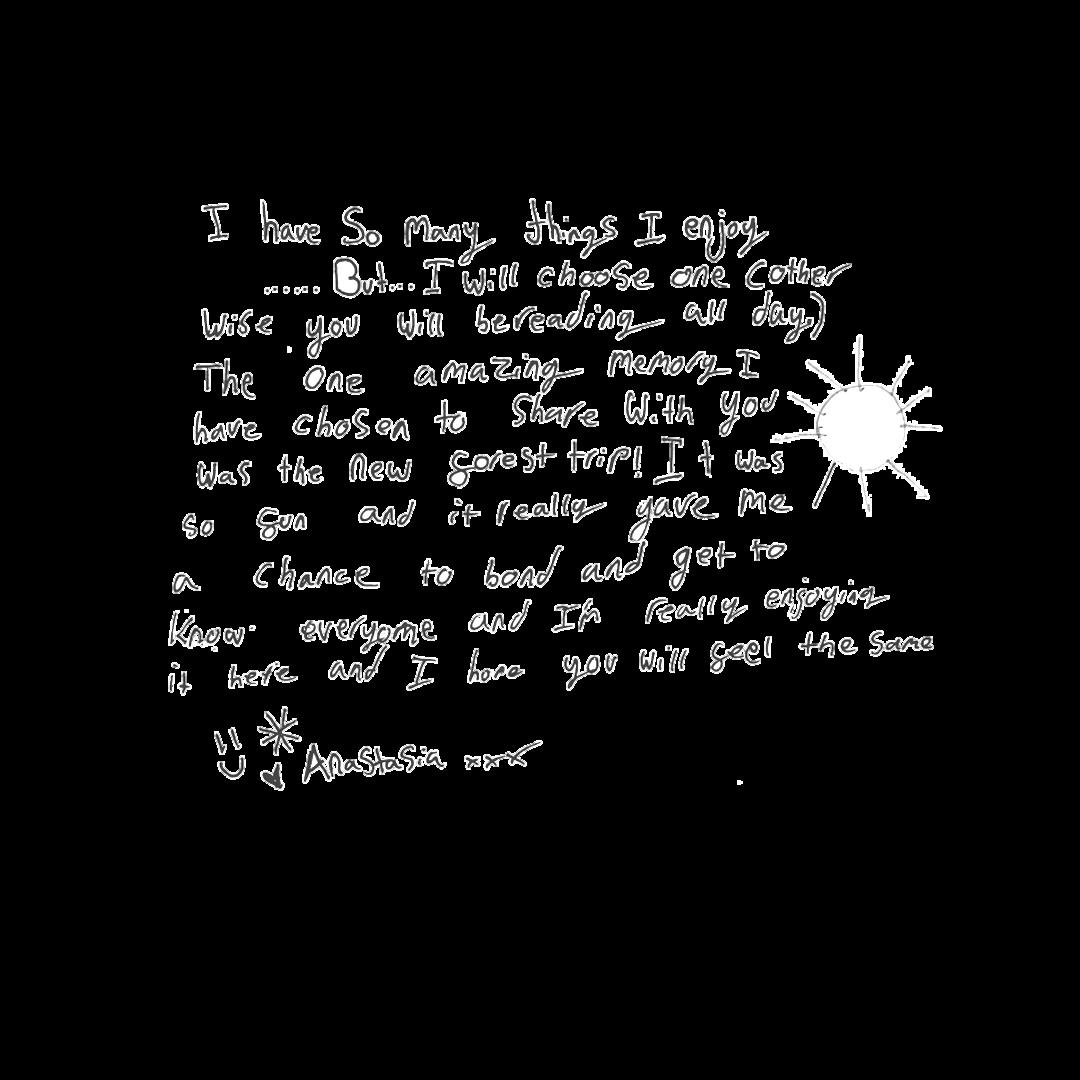 I have So many things I enjoy
..... But... I will choose one (other
wise you will be reading all day.)
The One amazing memory I
have chosen to Share With you
was the New forest trip! It was
so fun and it really gave me
a chance to bond and get to
Know everyone and I'm really enjoying
it here and I hope you will feel the same
Anastasia xxx